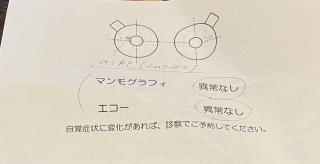 マンモグラフィ 異常なし
エコー 異常なし
自覚症状に変化があれば、診察でご予約してください。